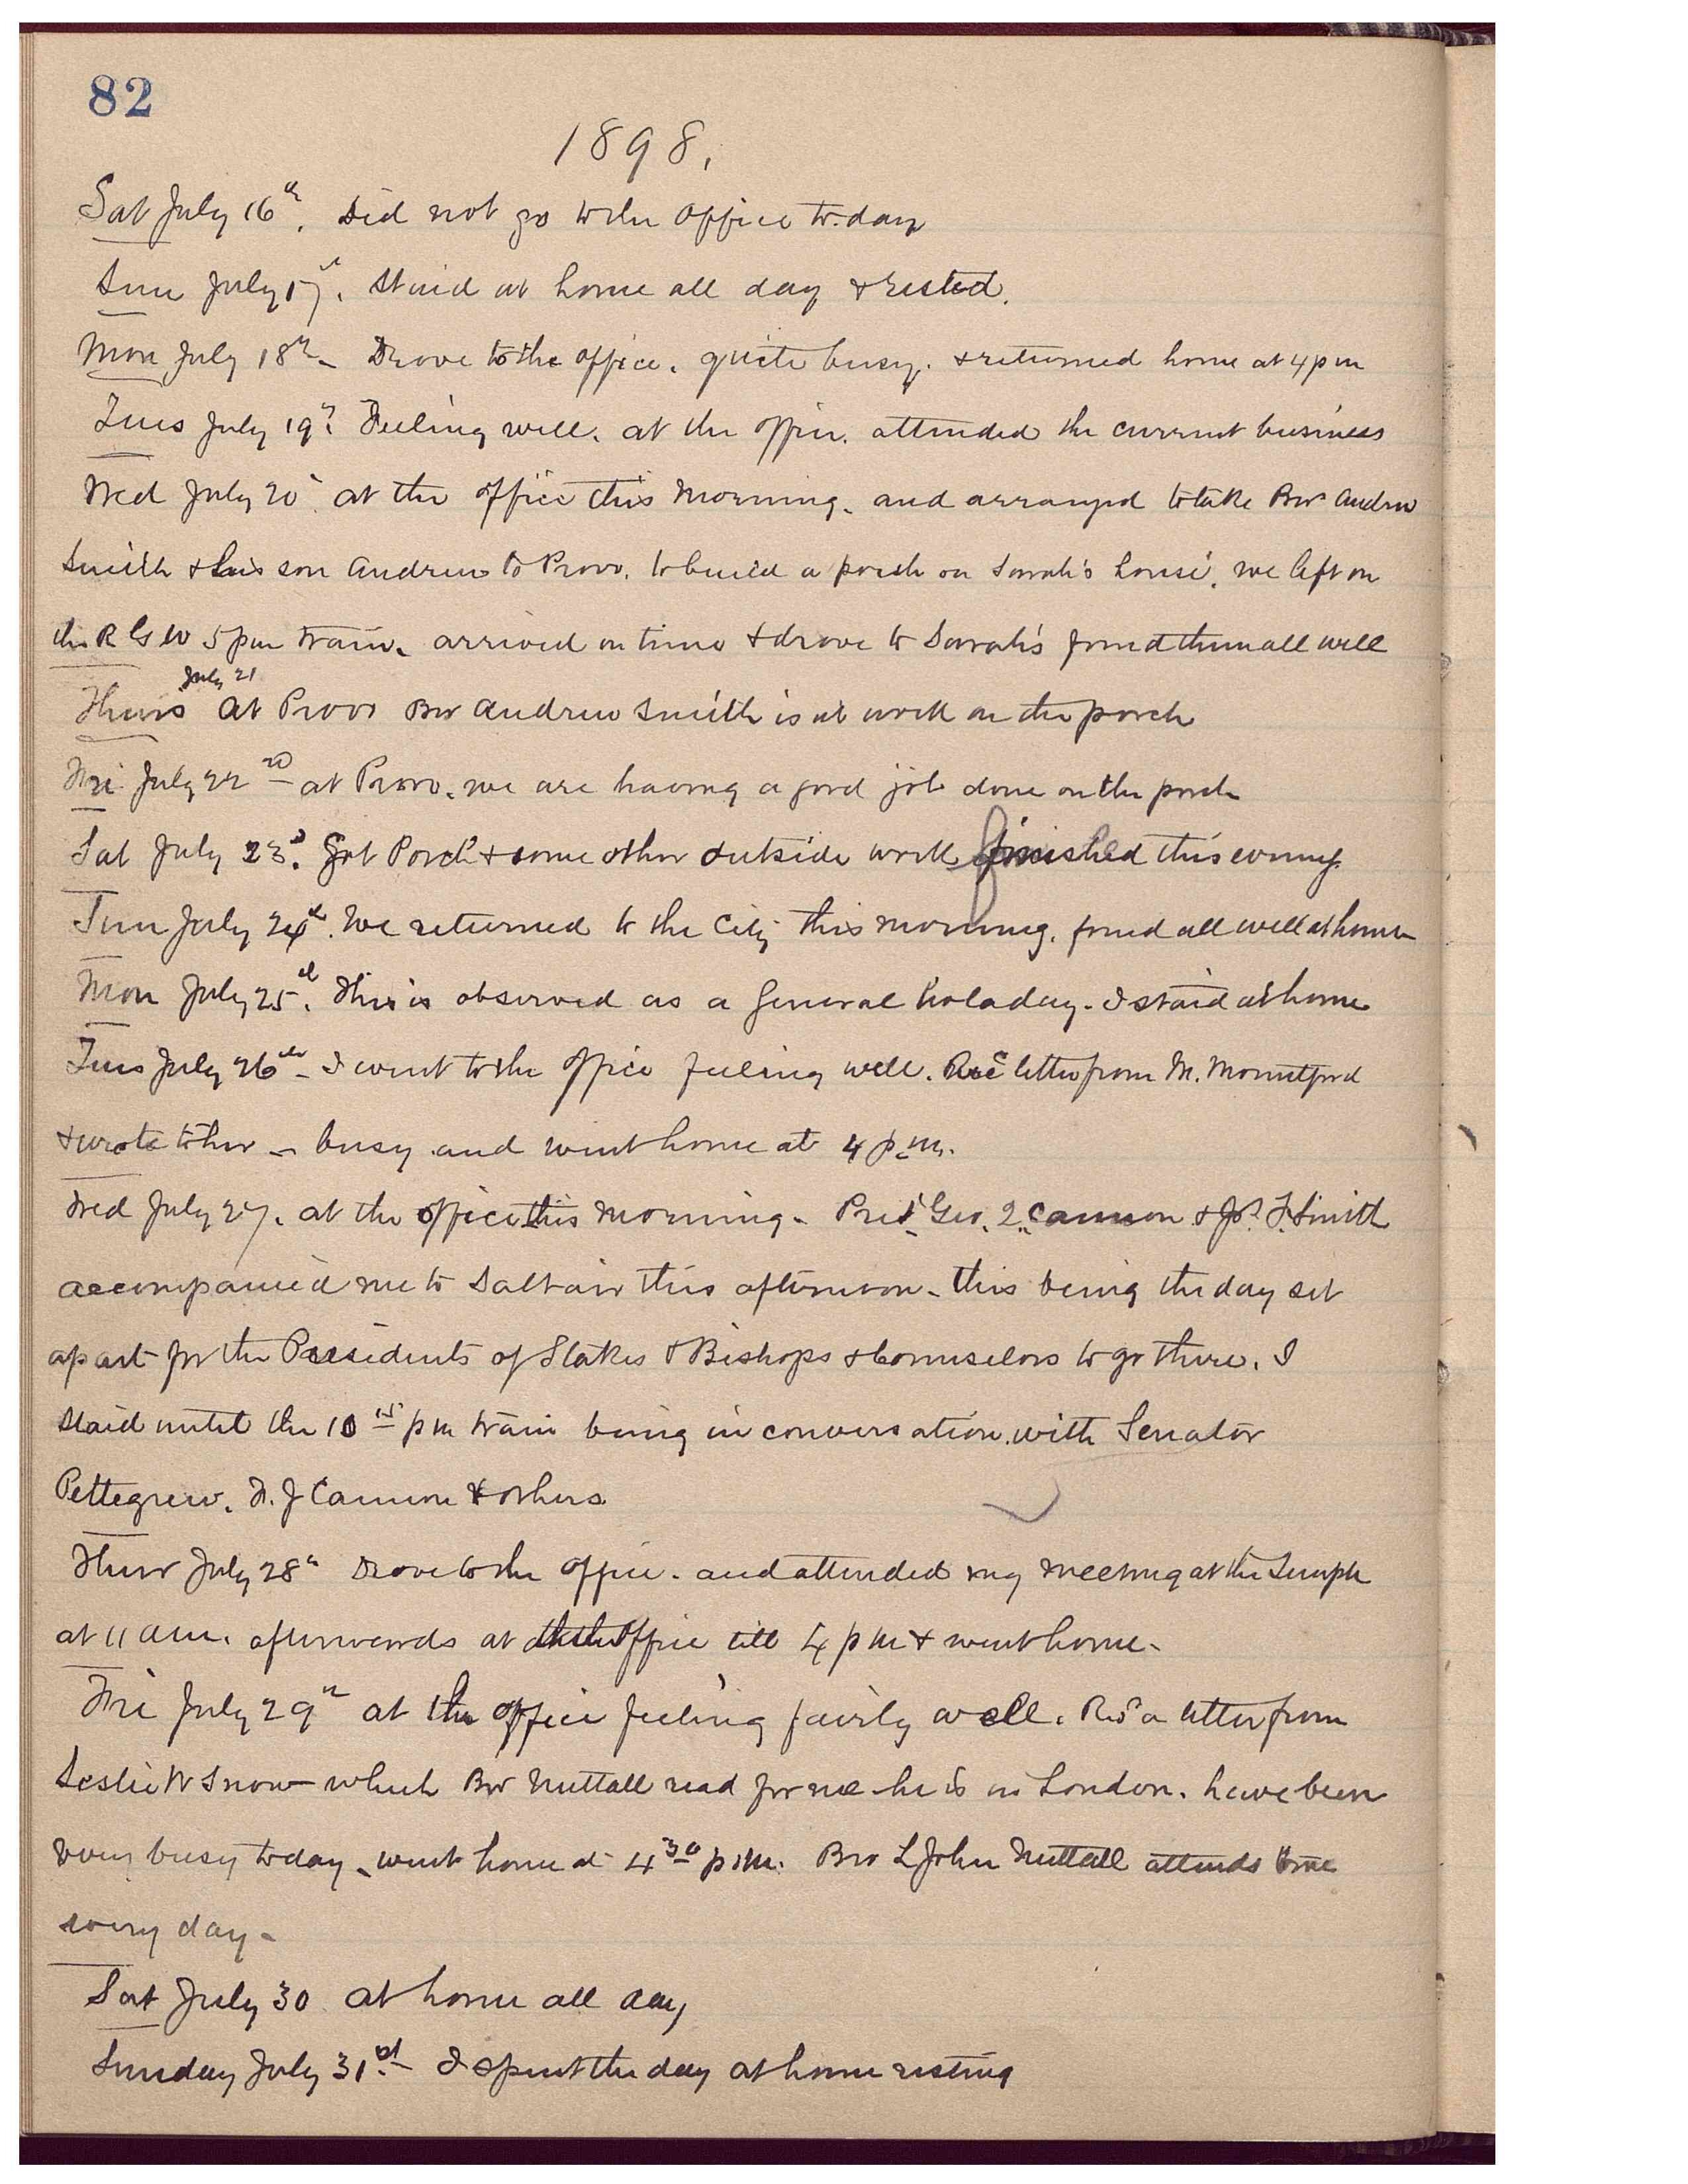 82
1898.
Sat July 16th. Did not go to the office to-day
Sun July 17th. Staid at home all day & rested.
Mon July 18th - Drove to the office. quite busy. & returned home at 4 pm
Tues July 19th. Feeling well. at the office. attended the current business
Wed July 20 at the office this morning. and arranged to take Bro Andrew
Smith & his son Andrew to Provo. to build a porch on Sarah's house. we left on
the R G W 5 pm train. arrived on time & drove to Sarah's found them all well
July 21
Thurs at Provo Bro Andrew Smith is at work on the porch
Fri July 22nd at Provo. we are having a good job done on the porch
Sat July 23d. Got Porch & some other outside work finished this evening.
Sun July 24th. We returned to the City this morning. found all well at home
Mon July 25th. This is observed as a General holaday - I staid at home
Tues July 26th - I went to the office feeling well. Recd letter from M. Mountford
& wrote to her - busy and went home at 4 p.m.
Wed July 27. at the office this morning - Prests Geo. Q. Cannon & Jos. F. Smith
accompanied me to Saltair this afternoon - this being the day set
apart for the Presidents of Stakes & Bishops & Counselors to go there. I
staid until the 10 15 pm train being in conversation with Senator
Pettegrew. F. J Cannon & others
Thur July 28th Drove to the office - and attended my meeting at the Temple
at 11 am. afterwards at the office till 4 p m & went home -
Fri July 29th at the office feeling fairly well. Recd a letter from
Leslie W Snow - which Bro Nuttall read for me - he is in London. have been
very busy today - went home at 4 30 p.m. Bro L John Nuttall attends to me
every day -
Sat July 30 at home all day
Sunday July 31st - I spent the day at home resting